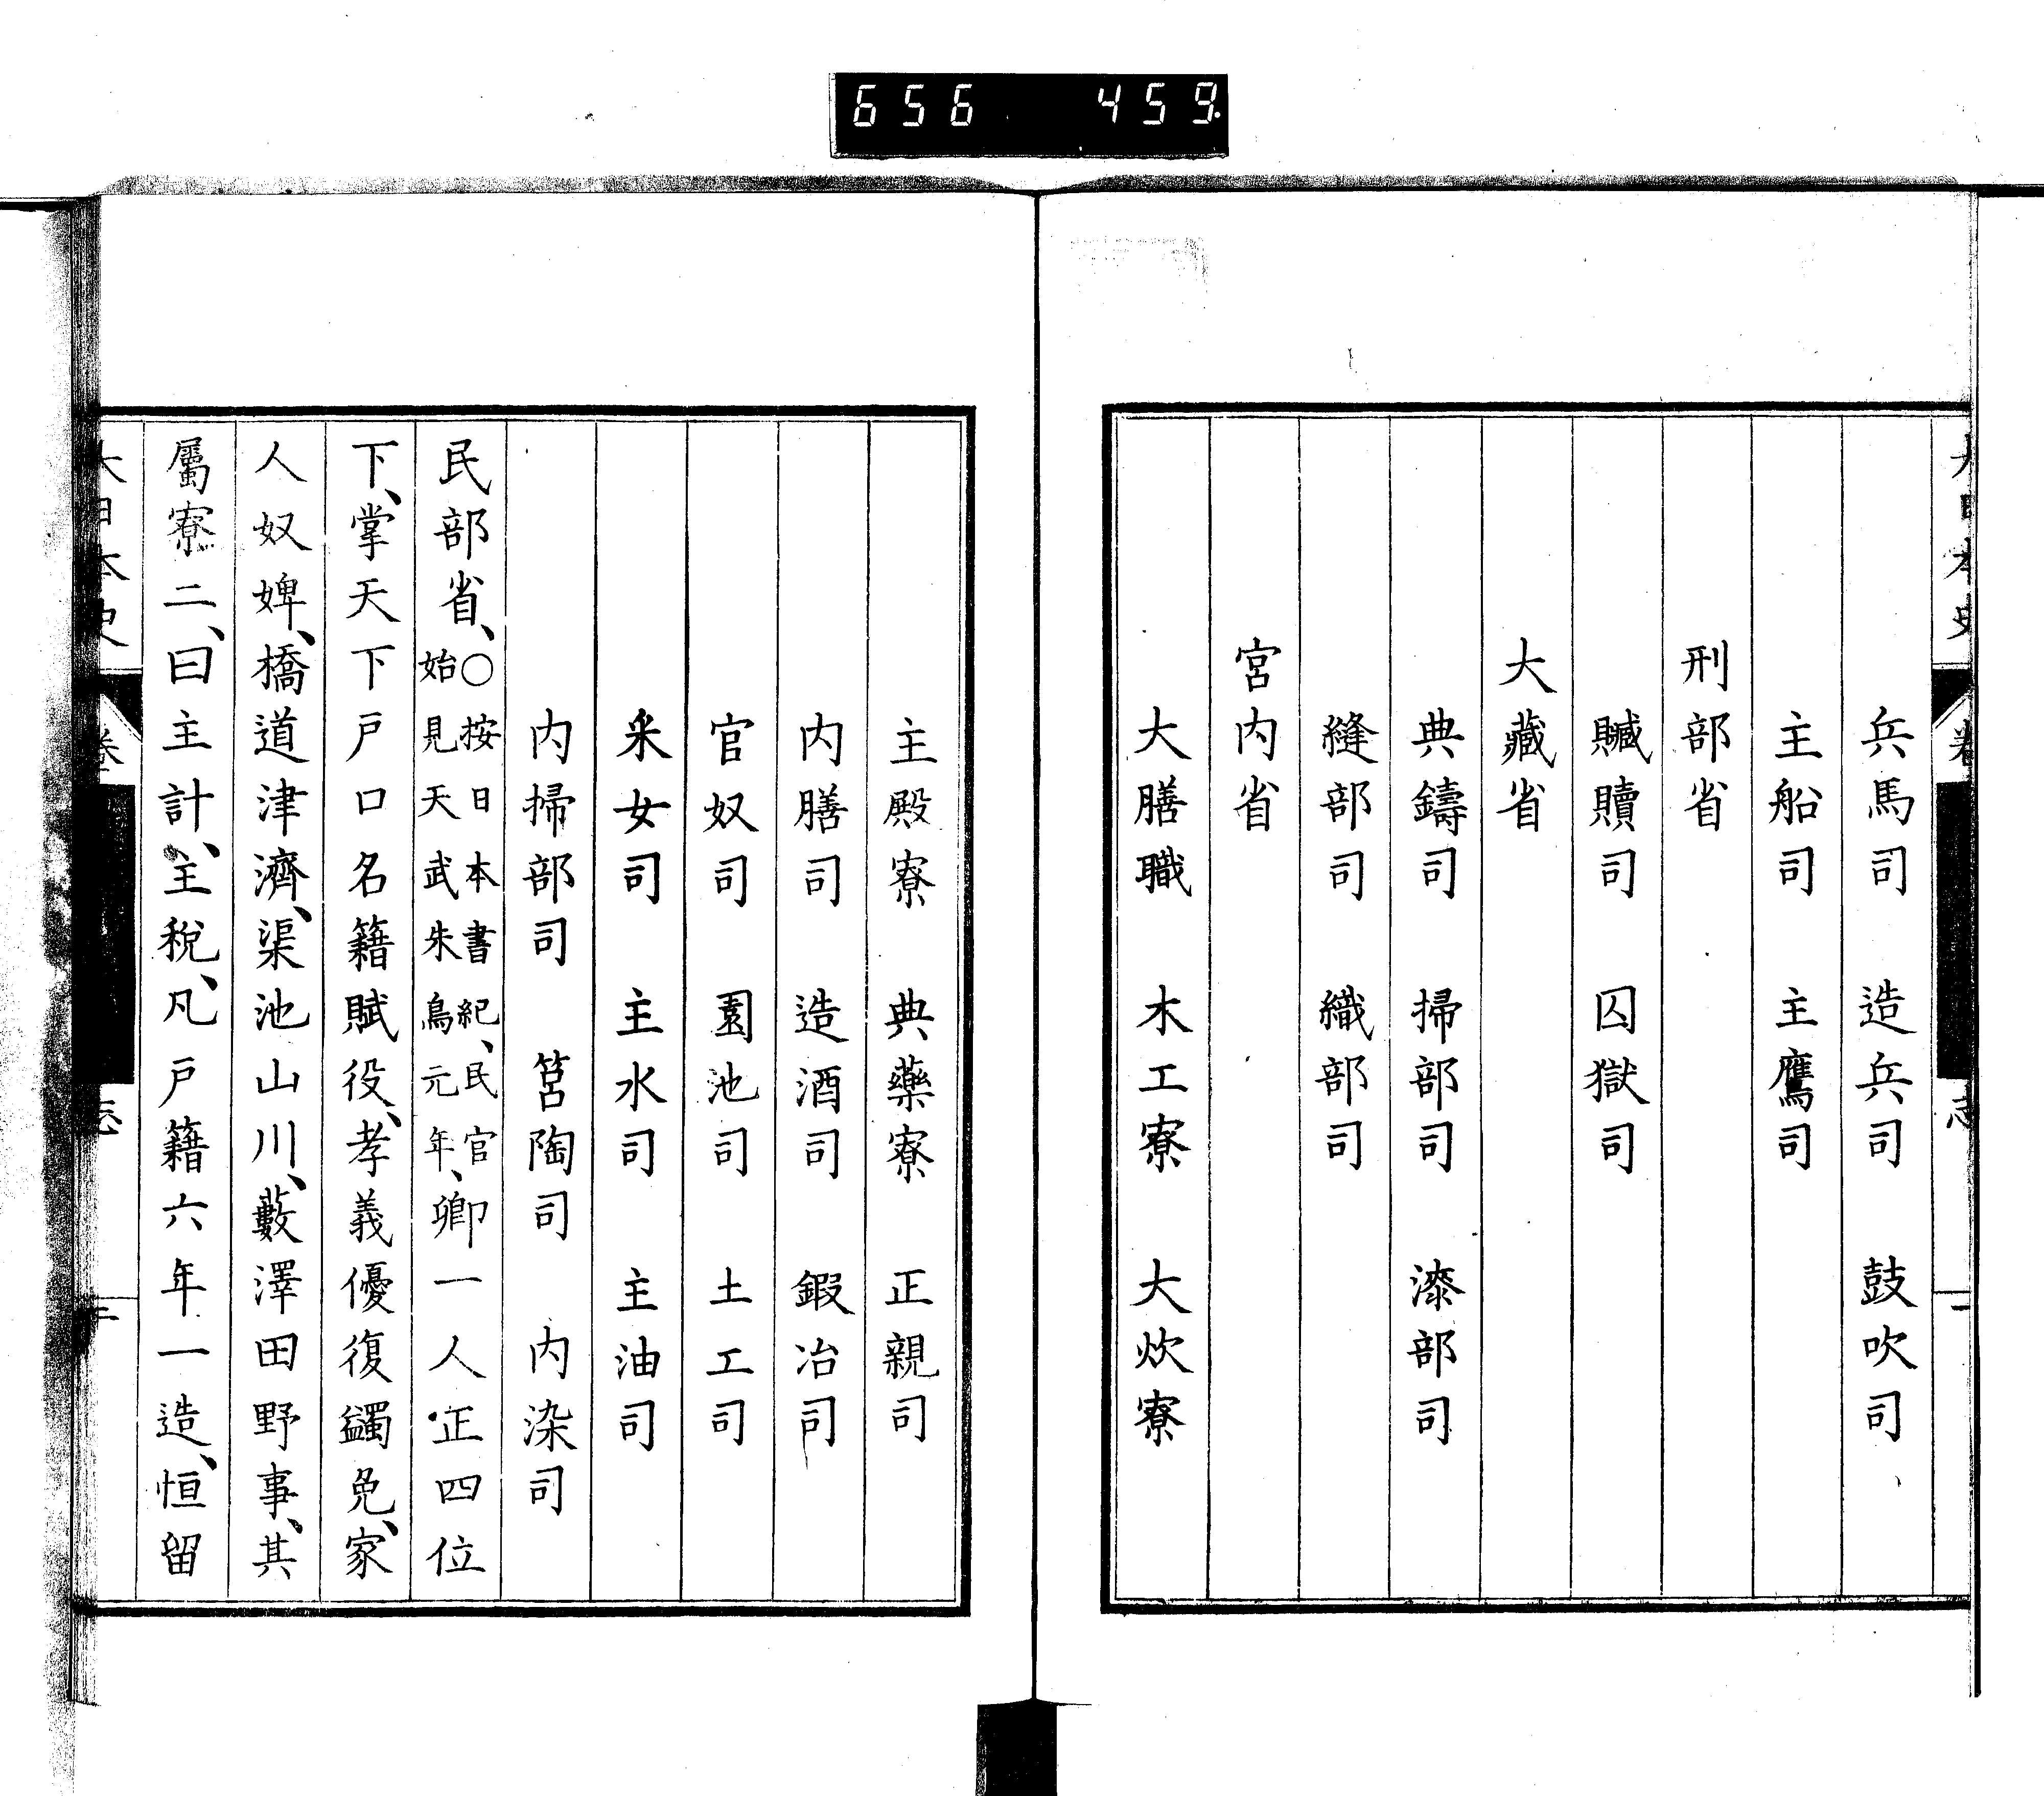 656 459
大日本史 卷 志 一
兵馬司 造兵司 鼓吹司
主船司 主鷹司
刑部省
贓贖司 囚獄司
大藏省
典鑄司 掃部司 漆部司
縫部司 織部司
宮内省
大膳職 木工寮 大炊寮
主殿寮 典藥寮 正親司
内膳司 造酒司 鍜冶司
官奴司 園池司 土工司
釆女司 主水司 主油司
内掃部司 筥陶司 内染司
民部省、○按日本書紀、民官始見天武朱鳥元年、卿一人正四位
下、掌天下戸口名籍賦役、孝義優復蠲免、家
人奴婢、橋道津濟、渠池山川、藪澤田野事、其
屬寮二、曰主計、主稅、凡戸籍六年一造、恒留
大日本史 卷 志 二